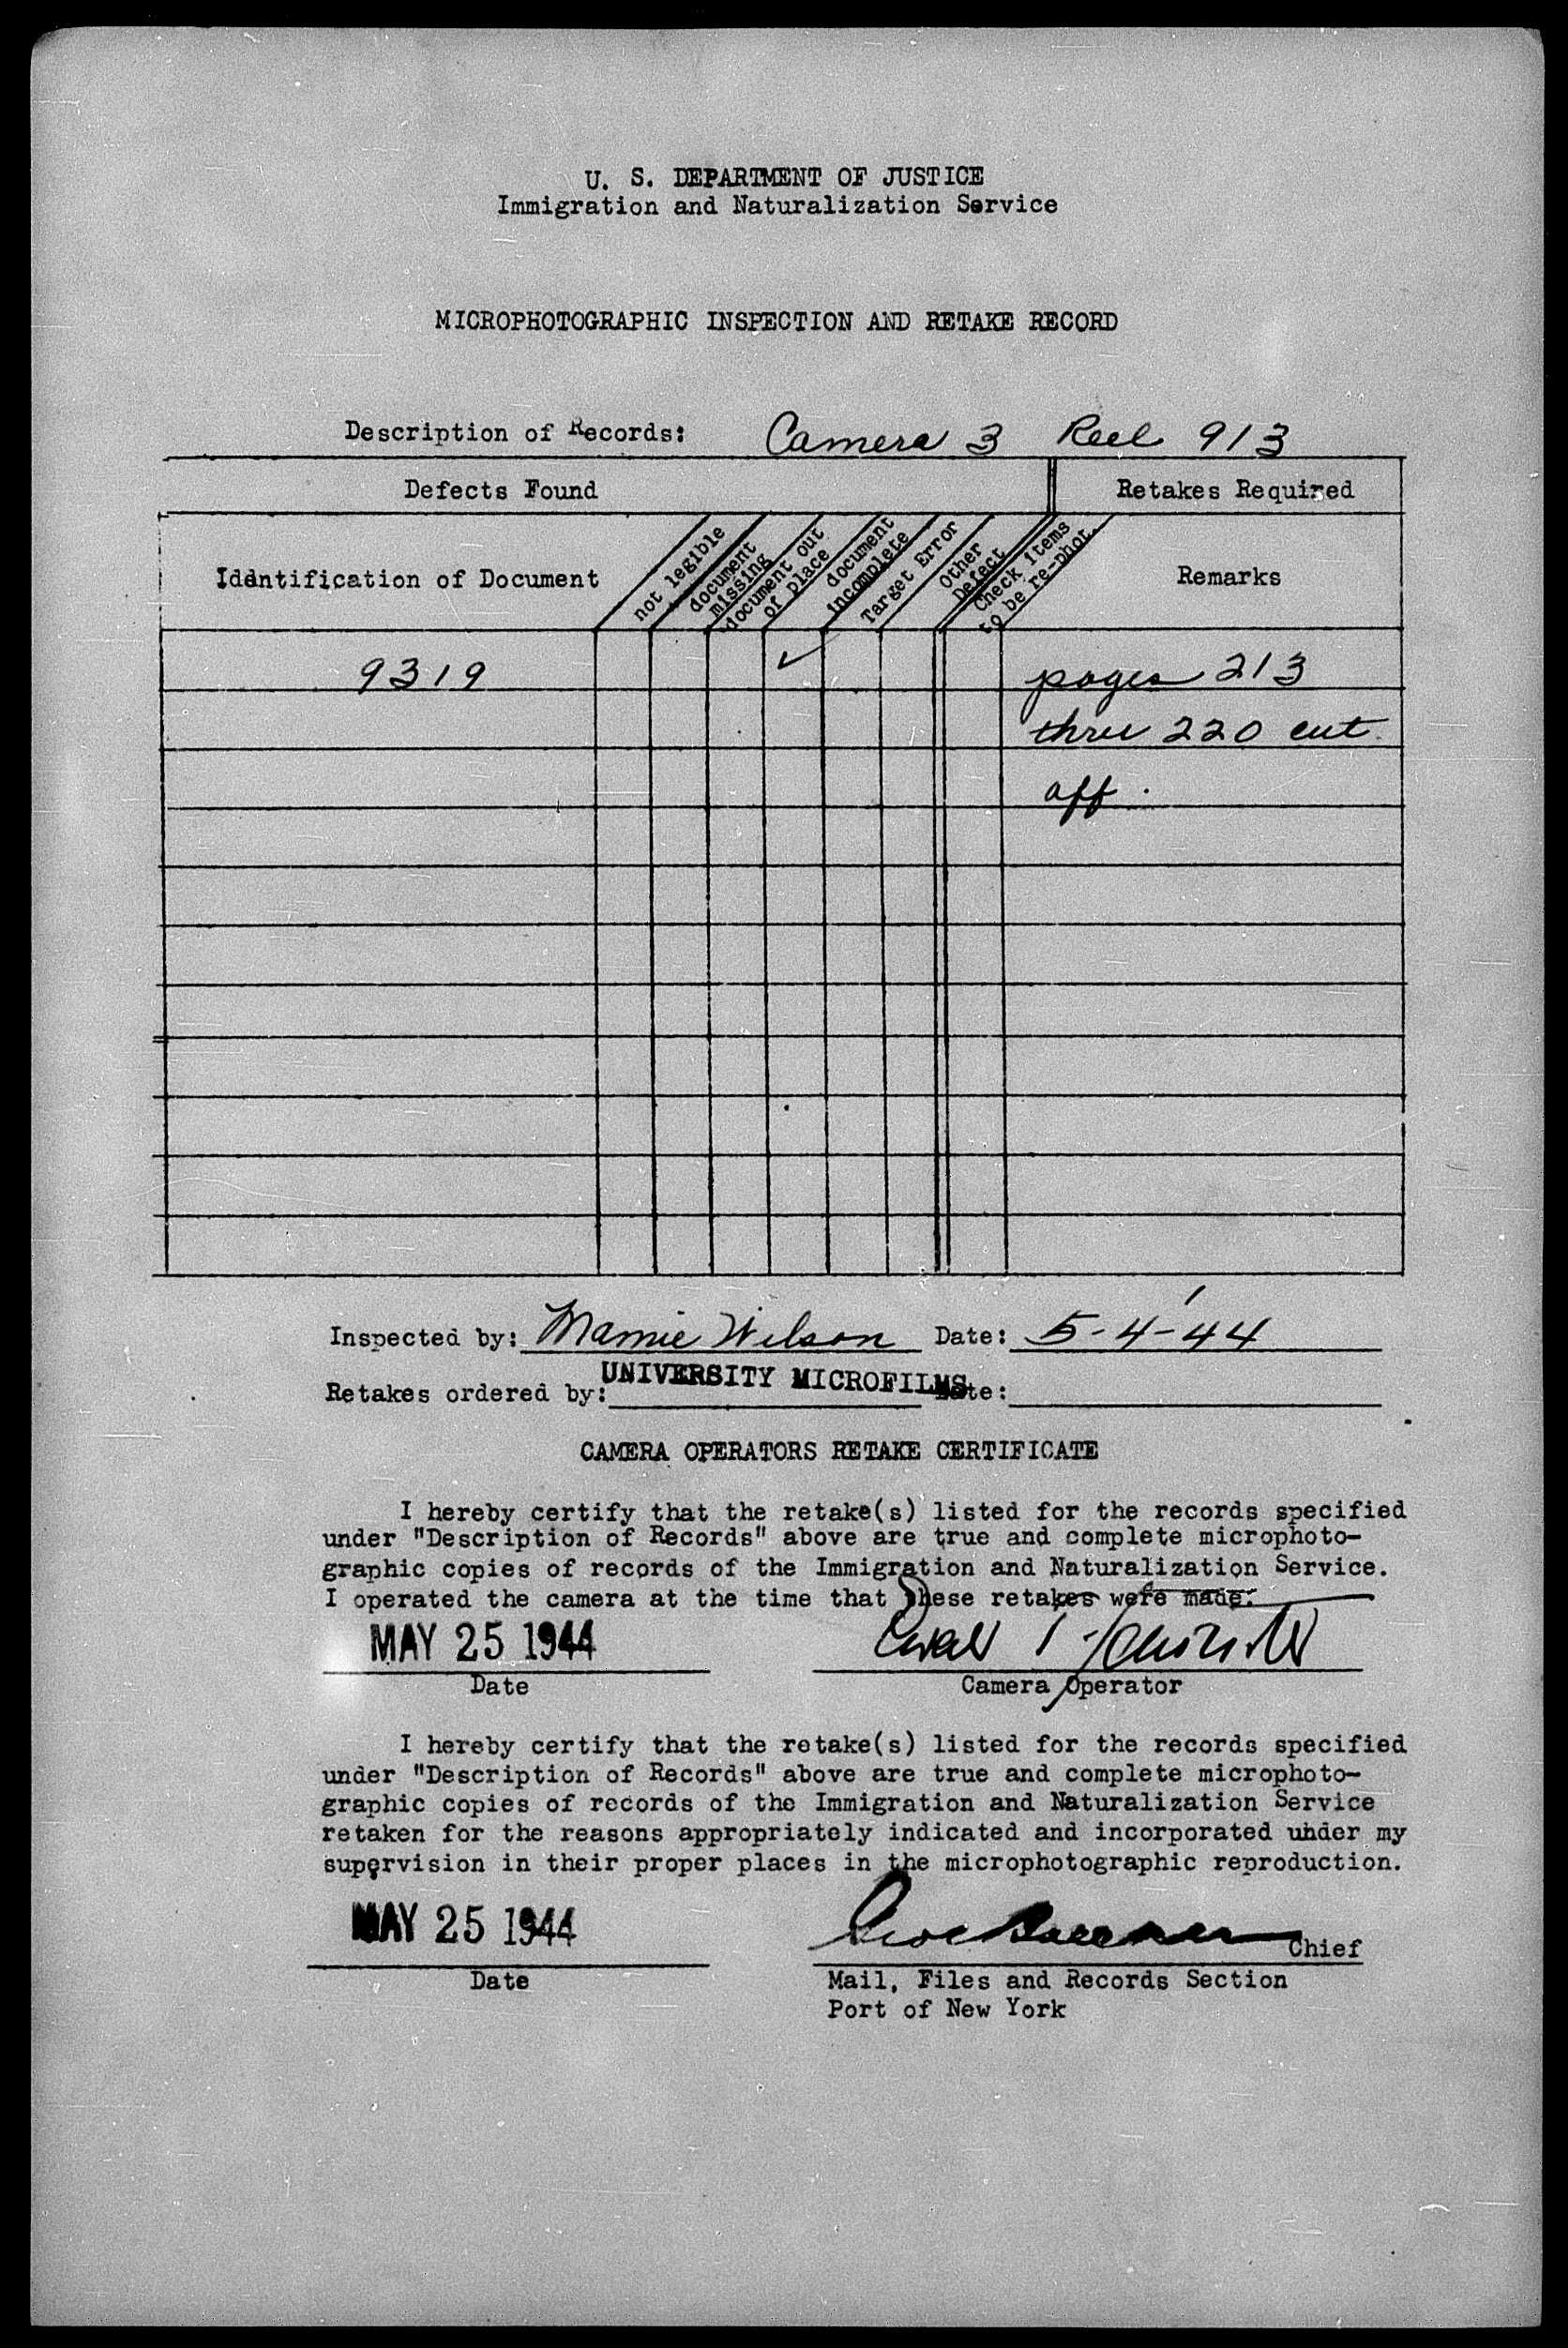 U. S. DEPARTMENT OF JUSTICE
Immigration and Naturalization Service
MICROPHOTOGRAPHIC INSPECTION AND RETAKE RECORD
Description of Records: Camera 3 Reel 913
Defects Found Retakes Required
Identification of Document
not legible
document missing
document out of place
document incomplete
Target Error
Other Defect
Check items to be re-phot.
Remarks
9319 ✓ pages 213
thru 220 cut
off.
Inspected by: Mamie Wilson Date: 5-4-44
UNIVERSITY MICROFILMS
Retakes ordered by: Date:
CAMERA OPERATORS RETAKE CERTIFICATE
I hereby certify that the retake(s) listed for the records specified
under "Description of Records" above are true and complete microphoto-
graphic copies of records of the Immigration and Naturalization Service.
I operated the camera at the time that these retakes were made.
MAY 25 1944
Date Camera Operator
I hereby certify that the retake(s) listed for the records specified
under "Description of Records" above are true and complete microphoto-
graphic copies of records of the Immigration and Naturalization Service
retaken for the reasons appropriately indicated and incorporated under my
supervision in their proper places in the microphotographic reproduction.
MAY 25 1944 Chief
Date Mail, Files and Records Section
Port of New York